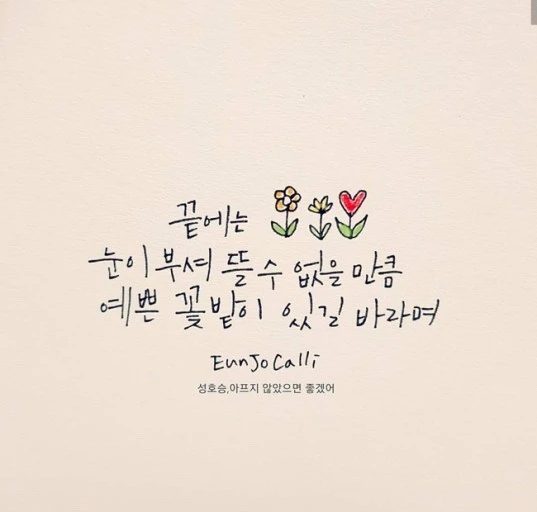 끝에는
눈이 부셔 뜰 수 없을 만큼
예쁜 꽃밭이 있길 바라며
EunJo Calli
성호승,아프지 않았으면 좋겠어